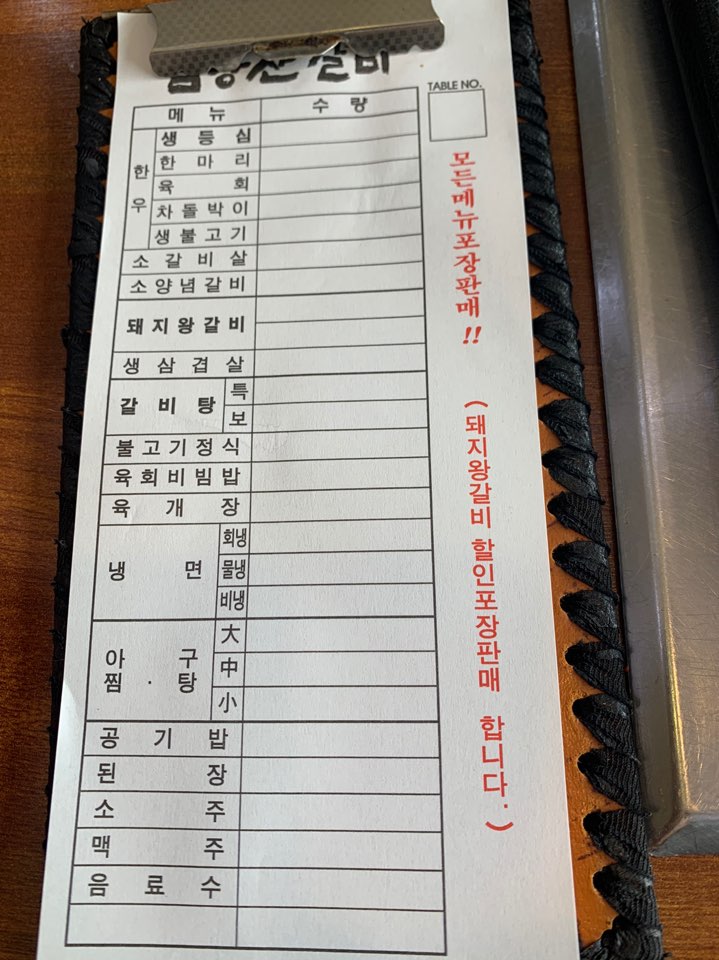 갈비
TABLE NO.
메뉴 수량
한우
생등심
한마리
육회
차돌박이
생불고기
소갈비살
소양념갈비
돼지왕갈비
생삼겹살
갈비탕 특
보
불고기정식
육회비빔밥
육개장
냉면 회냉
물냉
비냉
아구찜·탕 大
中
小
공기밥
된장
소주
맥주
음료수
모든메뉴포장판매!!
(돼지왕갈비 할인포장판매 합니다.)